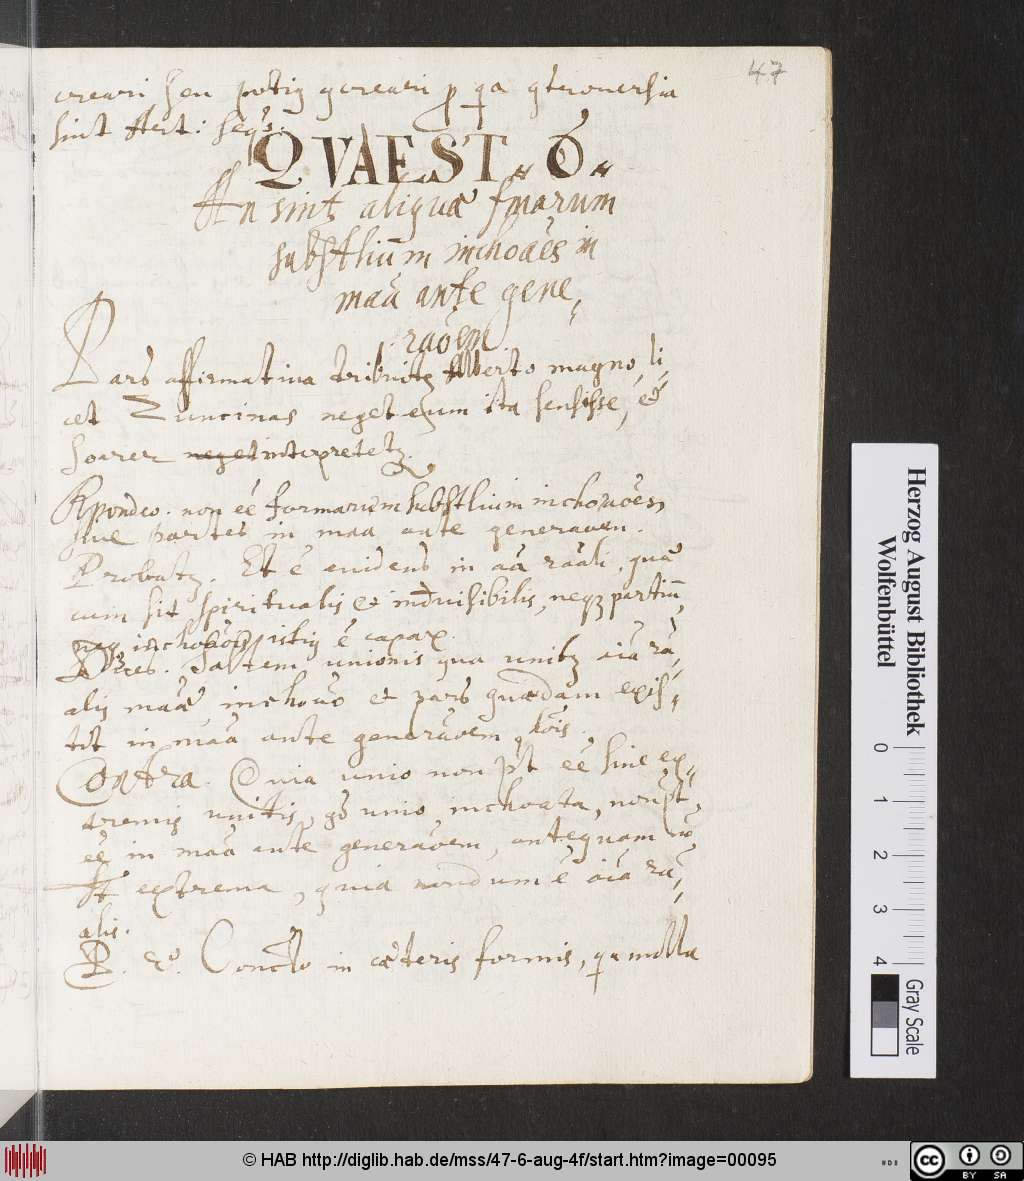 47
creari seu potiꝯ ꝯcreari ꝓ qua ꝯtrouersia
sint Art: seqs.
QVAEST. O.
An sint aliquæ fmarum
substliūm inchoāes in
maā ante gene,,
raōem
Pars affirmatiua tribuitꝫ Alberto magno, li,
cet Zuncinas neget eum ita sensisse, et
Soarez neget interpretetꝫ.
Rpondeo. non eē formarum substlium inchoāoēs
siue partes in maā ante generaōem.
Probatꝫ. Et ē euidens in aīa raāli, quæ
cum sit spiritualis et indiuisibilis, neqꝫ partiū,
neqꝫ inchoāois istiꝯ ē capax.
Dices. Saltem unionis qua unitꝫ aīa ra,,
alis maæ inchoāo et pars quædam exis,,
tit in maā ante generāoem
Contra. Quia unio non pt eē sine ex,,
tremis unitis, gͦ unio inchoata, non pt,
eē in maā ante generaōem, antequam
st extrema, quia nondum ē aīa ra,,
alis.
P. 2º. Conclo in cæteris formis, qa nulla
Herzog August Bibliothek
Wolfenbüttel
0 1 2 3 4
Gray Scale
© HAB http://diglib.hab.de/mss/47-6-aug-4f/start.htm?image=00095
cc BY SA